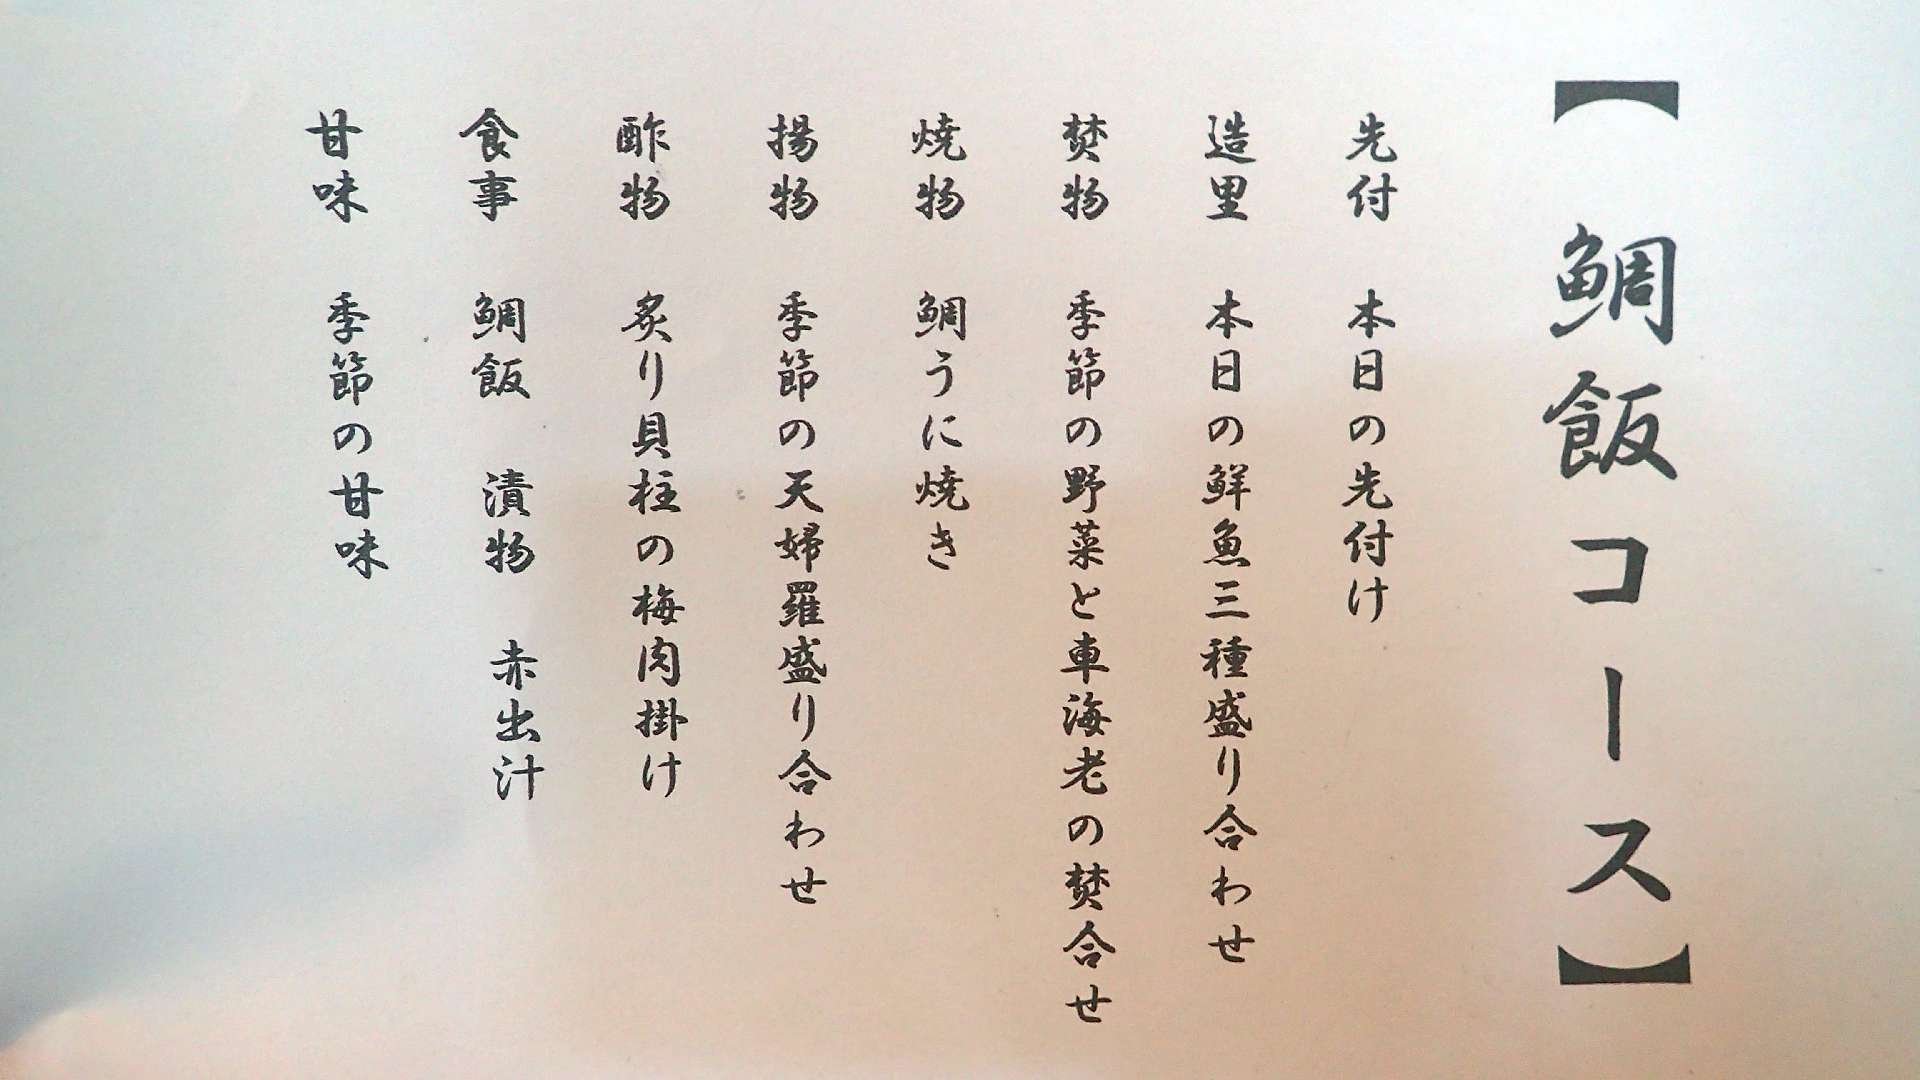 【鯛飯コース】
先付 本日の先付け
造里 本日の鮮魚三種盛り合わせ
焚物 季節の野菜と車海老の焚合せ
焼物 鯛うに焼き
揚物 季節の天婦羅盛り合わせ
酢物 炙り貝柱の梅肉掛け
食事 鯛飯 漬物 赤出汁
甘味 季節の甘味